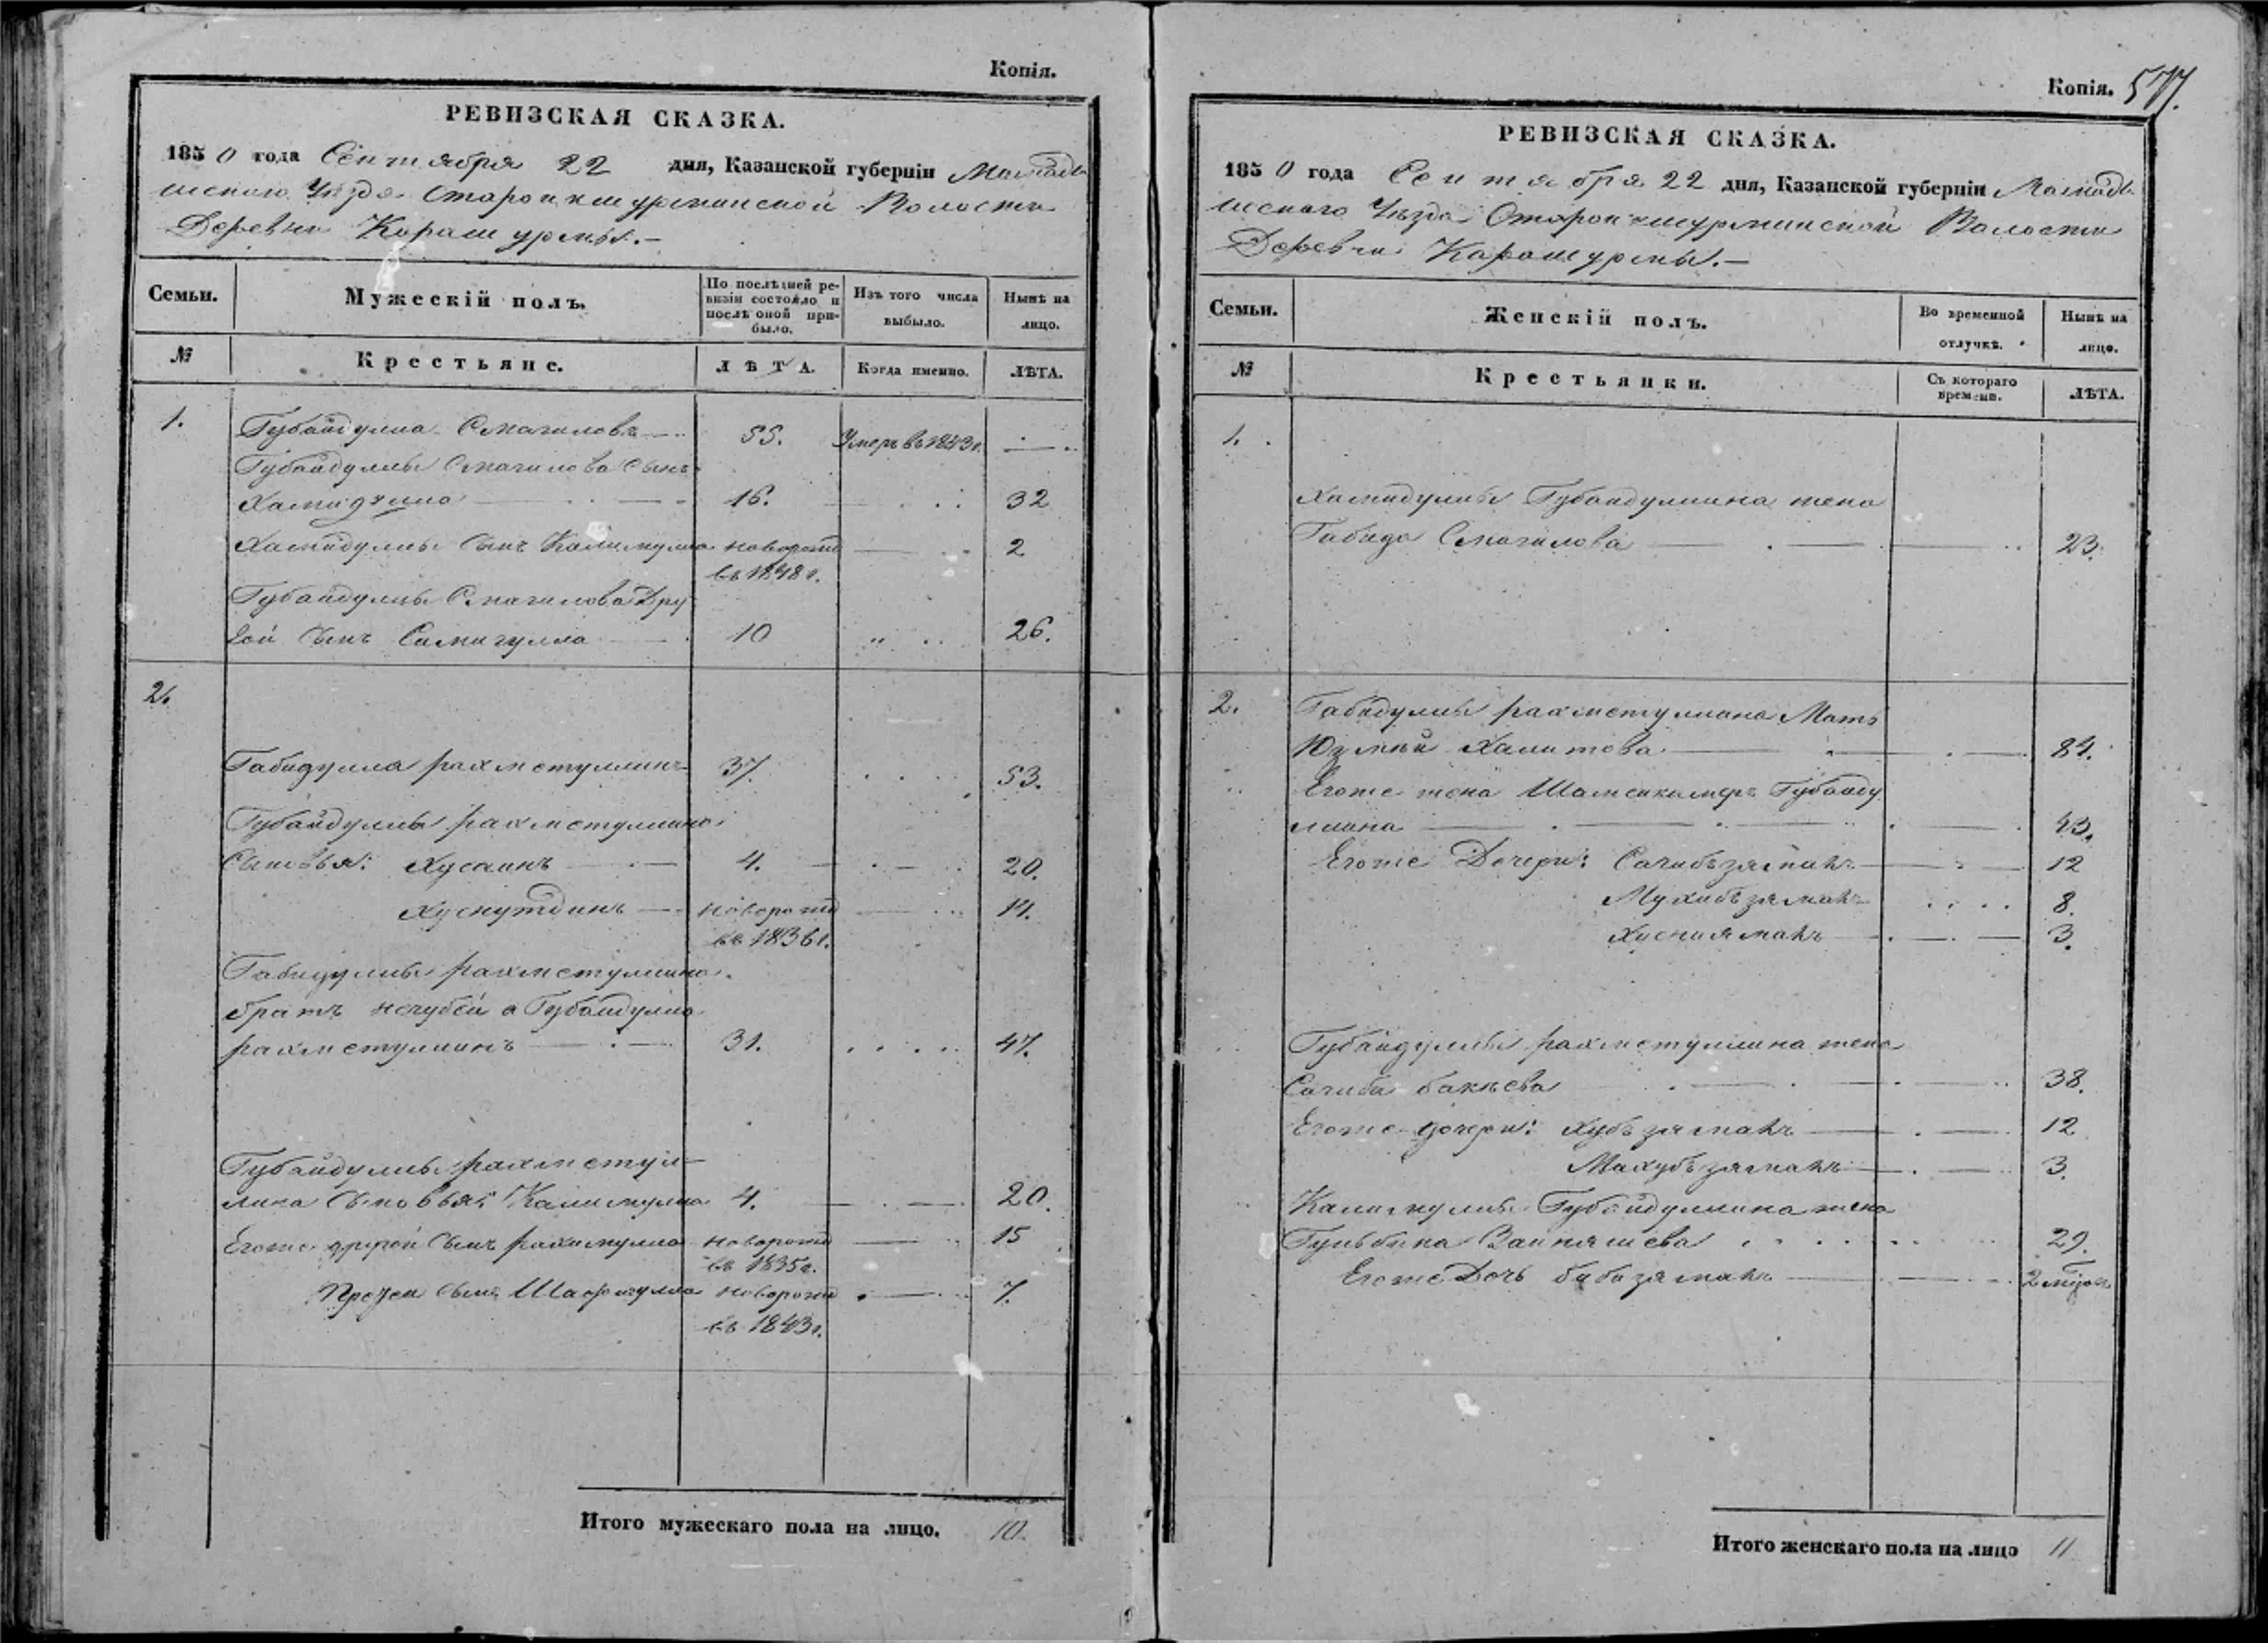 Копія.
РЕВИЗСКАЯ СКАЗКА.
1850 года Сентября 22 дня, Казанской губерніи Мамады
шскаго Уѣзда Волости
Деревни Карашурмы.—
Семьи.
Мужескій полъ.
По послѣдней ре-
визіи состояло и
послѣ оной при-
было.
Изъ того числа
выбыло.
Нынѣ на
лицо.
№
Крестьяне.
ЛѢТА.
Когда именно.
ЛѢТА.
1.
Губайдулла Смагиловъ 55. Умеръ въ 1843 г.
Губайдуллы Смагилова сынъ
Хамидулла 16. 32
Хамидуллы сынъ Калимулла новорожд 2
въ 1848 г.
Губайдуллы Смагилова дру
гой сынъ Самигулла 10 26.
2.
Габидулла рахметуллинъ 37. 53.
Губайдуллы рахметуллина
Сыновья: Хусаинъ 4. 20.
Хуснутдинъ новорожд 14.
въ 1836 г.
Габидуллы рахметуллина
братъ Губайдулла
рахметуллинъ 31. 47.
Губайдуллы рахметул-
лина Сыновья: Калимулла 4. 20.
Егоже другой сынъ рахимулла новорожд 15
въ 1835 г.
Третей сынъ Шафигулла новорожд 7.
въ 1843 г.
Итого мужескаго пола на лицо. 10.
Копія. 577.
РЕВИЗСКАЯ СКАЗКА.
1850 года Сентября 22 дня, Казанской губерніи Мамады
шскаго Уѣзда Волости
Деревни Карашурмы.—
Семьи.
Женскій полъ.
Во временной
отлучкѣ.
Нынѣ на
лицо.
№
Крестьянки.
Съ котораго
времени.
ЛѢТА.
1.
Хамидуллы Губайдуллина жена
Габида Смагилова 23.
2.
Габидуллы рахметуллина Мать
Халитова 84.
Егоже жена Губайду
ллина 43.
Егоже Дочери: Сагибзямалъ 12
Мухибзямалъ 8.
Хуснизямалъ 3.
Губайдуллы рахметуллина жена
Сагиба бакѣева 38.
Егоже дочери: Хубзямалъ 12
Махубзямалъ 3.
Калимуллы Губайдуллина жена
29.
Егоже Дочь бибизямалъ
Итого женскаго пола на лицо 11